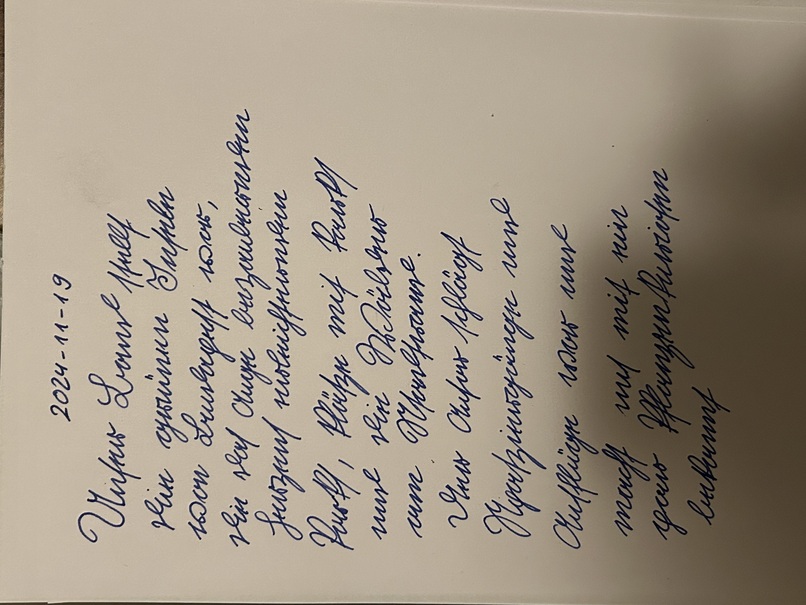 2024-11-19
Unser Band stellt
die grünen Inseln
von Budapest vor,
die das Auge bezaubernden
Herzens erleichternden
Parks, Plätze mit Parks
und die Wälder
am Stadtrand.
Der Autor schlägt
Spaziergänge und
Ausflüge vor und
macht uns mit ein
paar Pflanzenkuriosen
bekannt